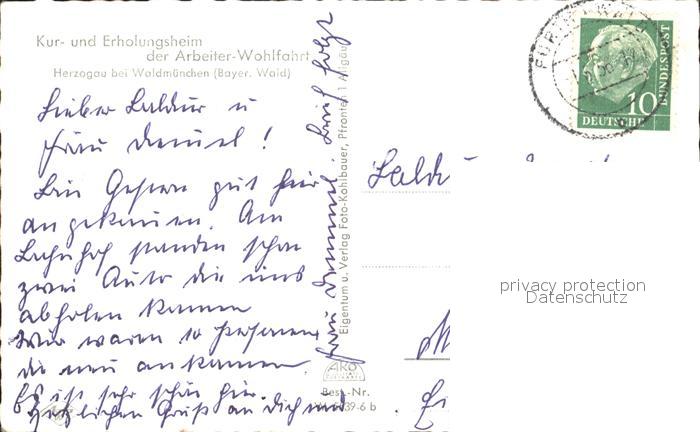 Kur- und Erholungsheim
der Arbeiter-Wohlfahrt
Herzogau bei Waldmünchen (Bayer. Wald)
Lieber Baldur u
Frau !
Bin Gestern gut hier
angekommen. Am
Bahnhof standen schon
zwei Auto die uns
abholen kamen
Wir waren 10 Personen
die neu ankamen.
Es ist sehr schön hier.
Herzlichen Gruß an Dich und
Frau . Brief folgt
Eigentum u. Verlag Foto-Kohlbauer, Pfronten 1 Allgäu
AKO
Best.-Nr.
39-6 b
FURTH
10
DEUTSCHE
BUNDESPOST
Baldu
privacy protection
Datenschutz